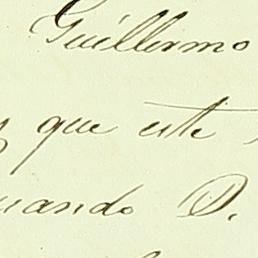 Guillermo
que este
uando D.